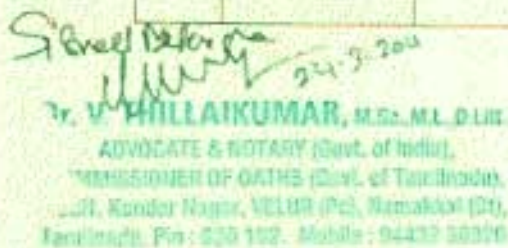 Signed Before me
24-3-201
Dr. V. THILLAIKUMAR, M.Sc., M.L., D.Litt.
ADVOCATE & NOTARY (Govt. of India),
COMMISSIONER OF OATHS (Govt. of Tamilnadu),
Kandar Nagar, VELUR (Po), Namakkal (Dt),
Tamilnadu, Pin : 182. Mobile : 94432